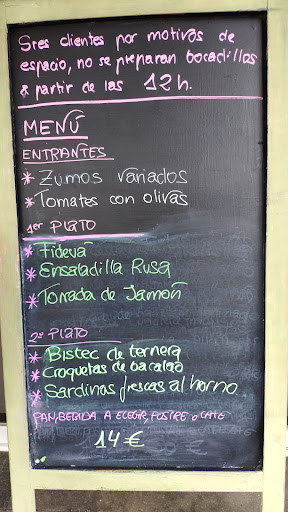 Sres clientes por motivos de
espacio, no se preparan bocadillos
a partir de las 12h.
MENÚ
ENTRANTES
* Zumos variados
* Tomates con olivas
1er PLATO
* Fidevà
* Ensaladilla Rusa
* Torrada de Jamón
2º PLATO
* Bistec de ternera
* Croquetas de bacalao
* Sardinas frescas al horno
PAN, BEBIDA A ELEGIR, POSTRE o CAFE
14 €